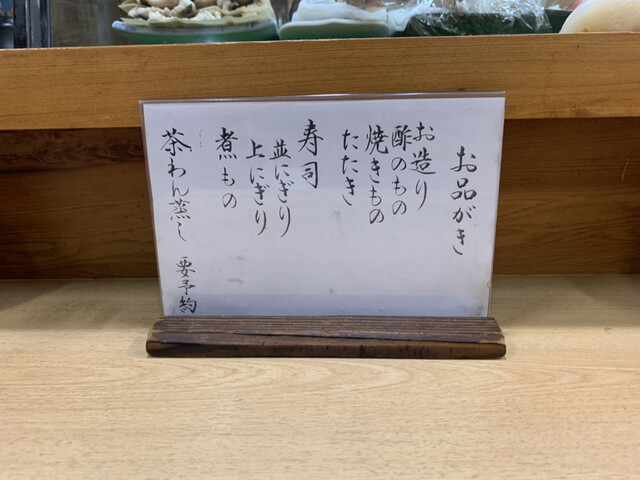 お品がき
お造り
酢のもの
焼きもの
たたき
寿司
並にぎり
上にぎり
煮もの
茶わん蒸し 要予約